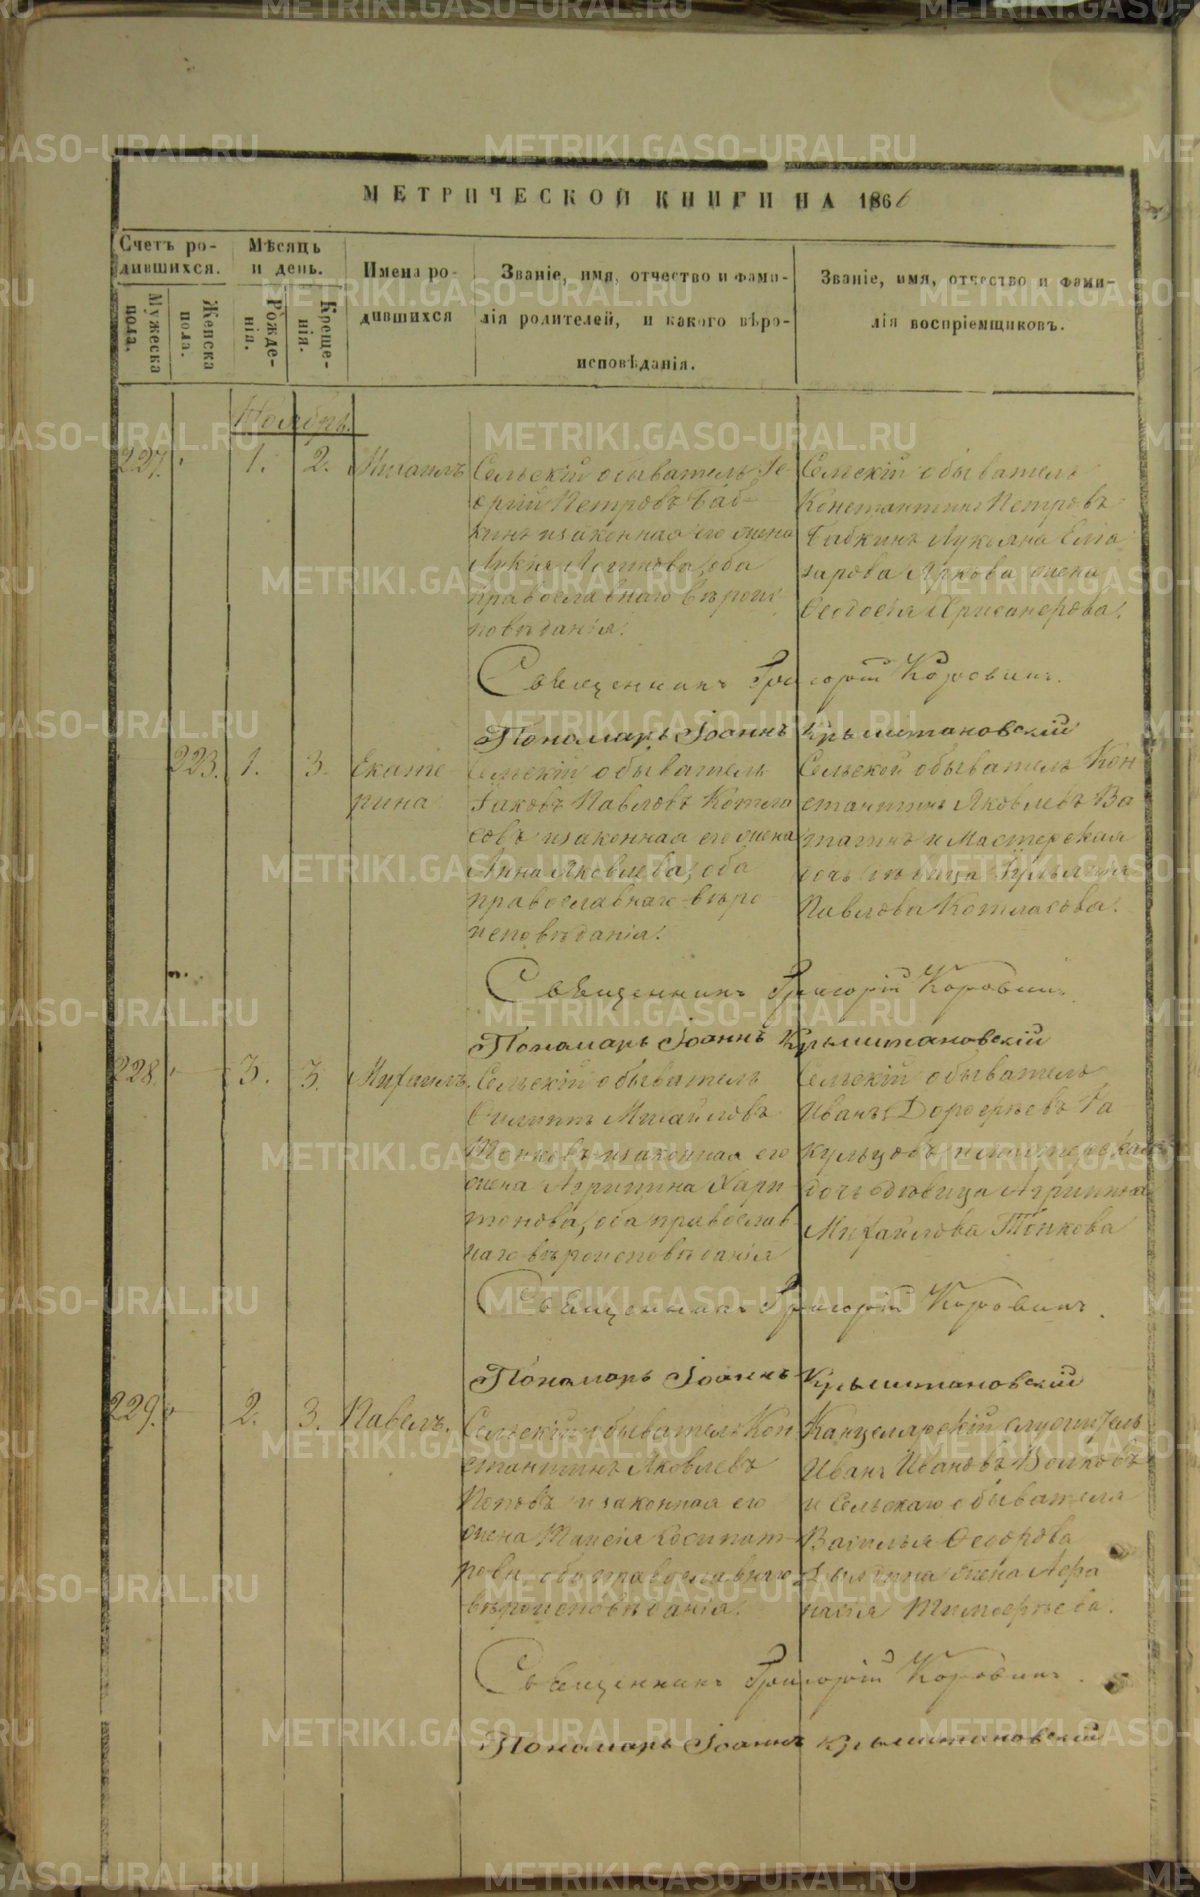 МЕТРИЧЕСКОЙ КНИГИ НА 1866
Счетъ ро-
дившихся.
Мѣсяць
и день.
Имена ро-
дившихся
Званіе, имя, отчество и фами-
лія родителей, и какого вѣро-
исповѣданія.
Званіе, имя, отчество и фами-
лія воспріемщиковъ.
Мужеска
пола.
Женска
пола.
Рожде-
нія.
Креще-
нія.
Ноябрь.
227. 1. 2. Михаилъ
Сельскій обыватель Ге-
оргій Петровъ Баб-
кинъ и законная его жена
Логинова, оба
православнаго вѣроис-
повѣданія.
Сельскій обыватель
Константинъ Петровъ
Бабкинъ Лукьяна Елиа
зарова жена
Ѳеодосія Хрисанфова.
Священникъ Григорій Коровинъ.
Пономарь Іоаннъ Крыштановскій
223. 1. 3. Екате
рина
Сельскій обыватель
Іаковъ Павловъ Котла
совъ и законная его жена
Анна Яковлева, оба
православнаго вѣро
исповѣданія.
Сельской обыватель Кон
стантинъ Яковлевъ Ва
и Мастерская
дочь дѣвица
Павлова Котласова.
Священникъ Григорій Коровинъ.
Пономарь Іоаннъ Крыштановскій
228. 3. 3. Михаилъ.
Сельскій обыватель
Филиппъ Михайловъ
Тонковъ и законная его
жена Агрипина Хари
тонова, оба православ-
наго вѣроисповѣданія
Сельскій обыватель
Иванъ Дорофѣевъ Га
кульцовъ и мастерская
дочь дѣвица Агрипина
Михайлова Тонкова
Священникъ Григорій Коровинъ.
Пономарь Іоаннъ Крыштановскій
229. 2. 3. Павелъ.
Сельскій обыватель Кон
стантинъ Яковлевъ
Поповъ и законная его
жена Таисія Косипат-
рова оба православнаго
вѣроисповѣданія.
Канцелярскій служитель
Иванъ Ивановъ Волковъ
и Сельскаго обывателя
Василья Ѳеодорова
жена Афа
насія Тимофѣева.
Священникъ Григорій Коровинъ.
Пономарь Іоаннъ Крыштановскій
METRIKI.GASO-URAL.RU